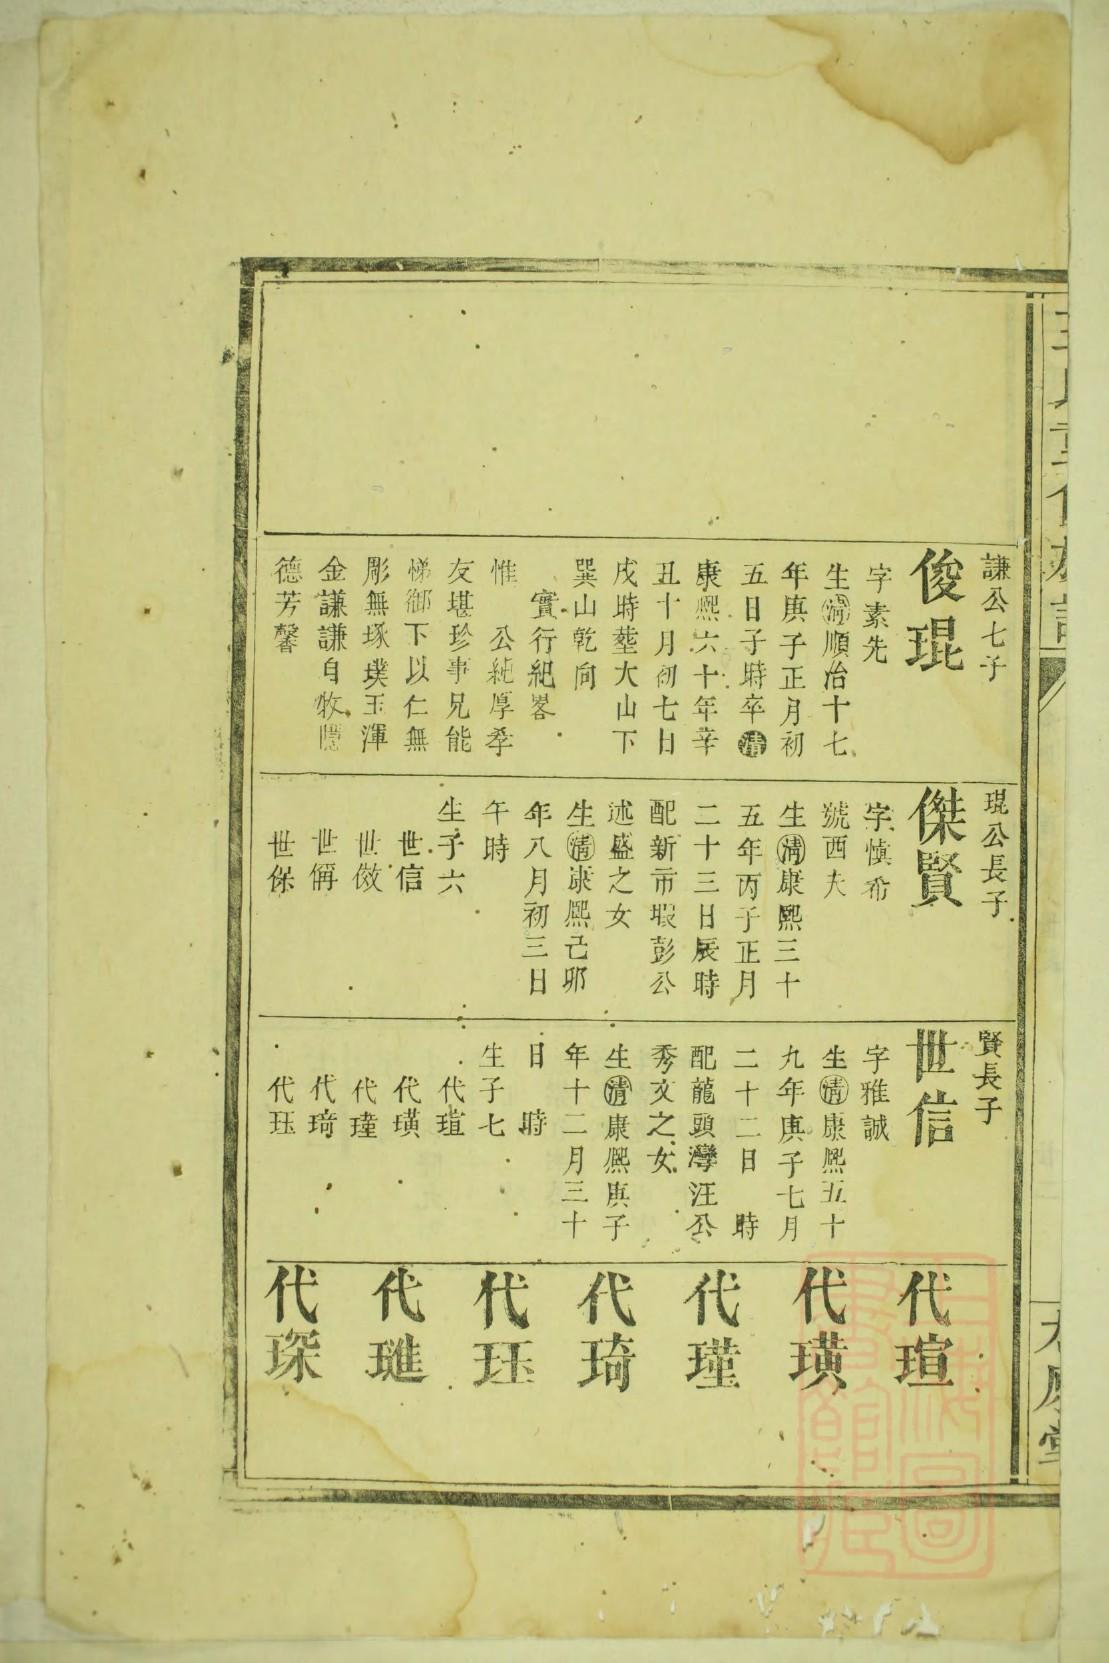 謙公七子
俊琨
字素先
生清順治十七
年庚子正月初
五日子時卒清
康熙六十年辛
丑十月初七日
戌時塟大山下
巽山乾向
實行紀畧
惟 公純厚孝
友堪珍事兄能
悌御下以仁無
彫無琢璞玉渾
金謙謙自牧隱
德芳馨
琨公長子
傑賢
字慎希
號西夫
生清康熙三十
五年丙子正月
二十三日辰時
配新市塅彭公
述盛之女
生清康熙己卯
年八月初三日
午時
生子六
世信
世傚
世偁
世保
賢長子
世信
字雅誠
生清康熙五十
九年庚子七月
二十二日 時
配龍頭灣汪公
秀文之女
生清康熙庚子
年十二月三十
日 時
生子七
代瑄
代璜
代瑾
代琦
代珏
代瑄
代璜
代瑾
代琦
代珏
代璡
代琛